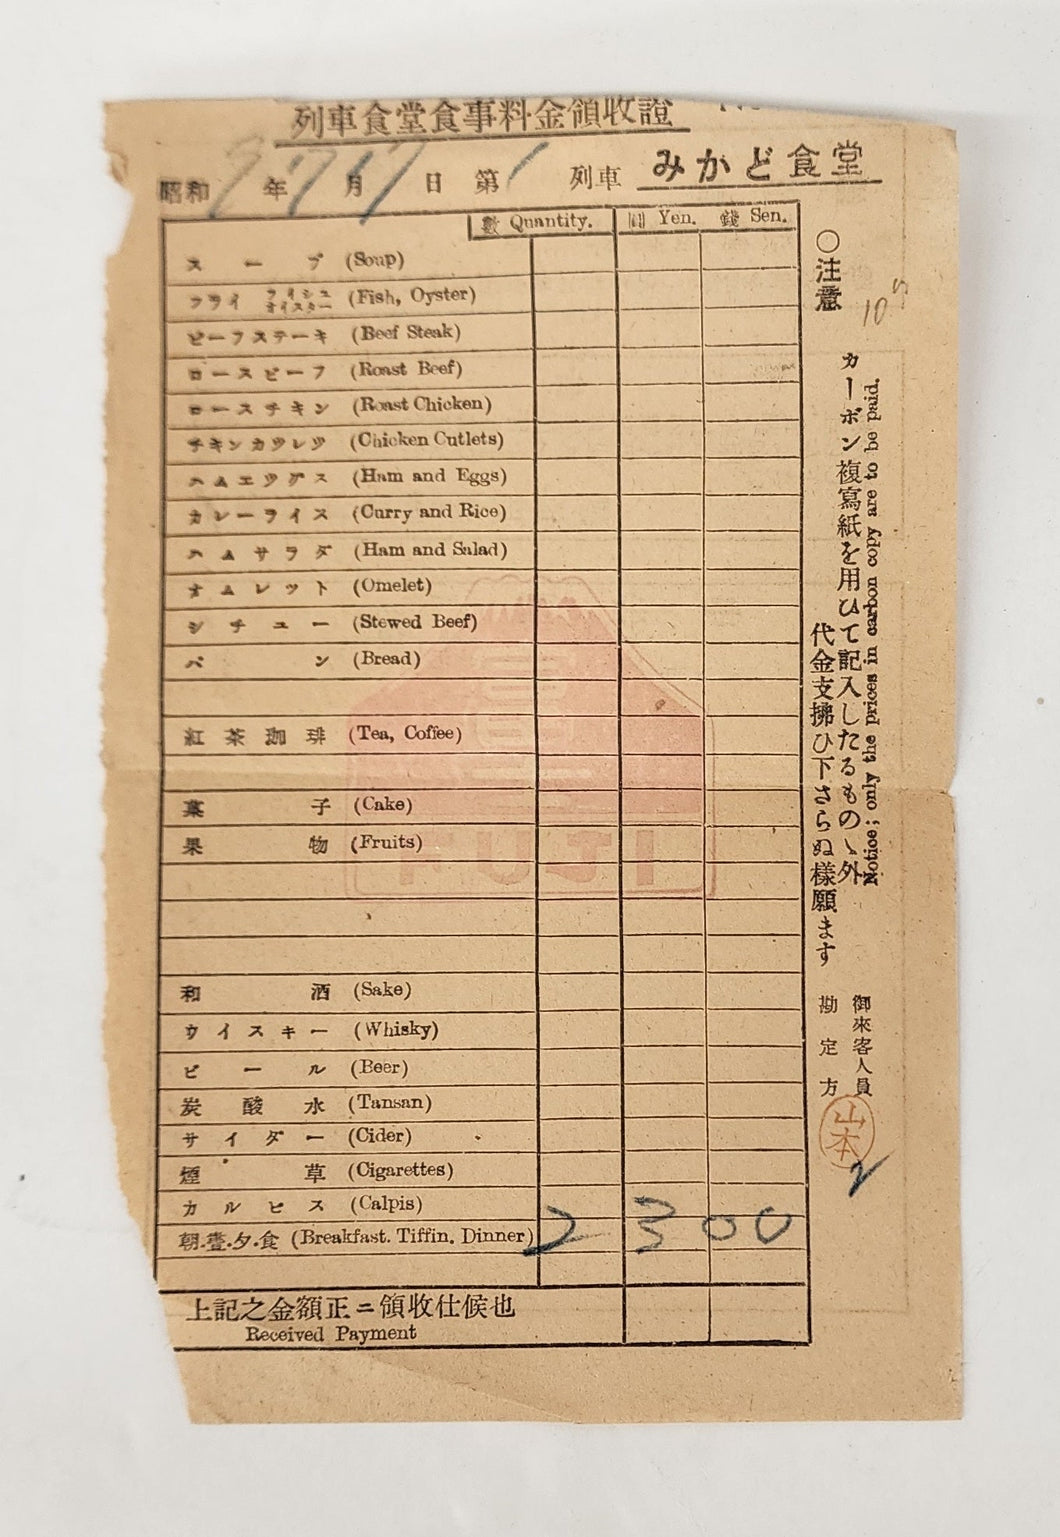 列車食堂食事料金領收證
昭和 9 年 7 月 17 日 第 1 列車 みかど食堂
數 Quantity. 圓 Yen. 錢 Sen.
スープ (Soup)
フライ フイシユ オイスター (Fish, Oyster)
ビーフステーキ (Beef Steak)
ロースビーフ (Roast Beef)
ロースチキン (Roast Chicken)
チキンカツレツ (Chicken Cutlets)
ハムエツグス (Ham and Eggs)
カレーライス (Curry and Rice)
ハムサラダ (Ham and Salad)
オムレツト (Omelet)
シチユー (Stewed Beef)
パン (Bread)
紅茶珈琲 (Tea, Coffee)
菓子 (Cake)
果物 (Fruits)
和酒 (Sake)
ウイスキー (Whisky)
ビール (Beer)
炭酸水 (Tansan)
サイダー (Cider)
煙草 (Cigarettes)
カルピス (Calpis)
朝.晝.夕.食 (Breakfast. Tiffin. Dinner) 2 3 00
上記之金額正ニ領收仕候也
Received Payment
○注意
カーボン複寫紙を用ひて記入したるものゝ外
代金支拂ひ下さらぬ樣願ます
Notice; only the prices in carbon copy are to be paid.
御來客人員 2
勘定方 山本
FUJI